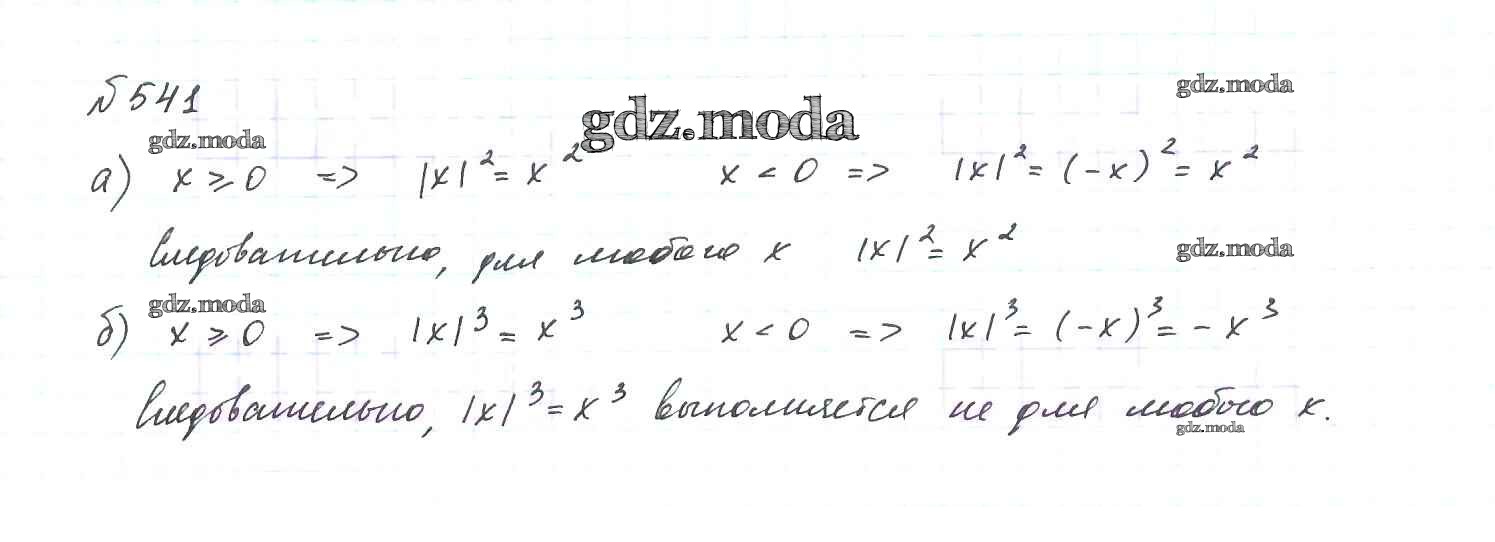 № 541
gdz.moda
gdz.moda
gdz.moda
а) x ⩾ 0 => |x|² = x² x < 0 => |x|² = (-x)² = x²
Следовательно, для любого x |x|² = x²
gdz.moda
gdz.moda
б) x ⩾ 0 => |x|³ = x³ x < 0 => |x|³ = (-x)³ = - x³
Следовательно, |x|³ = x³ выполняется не для любого x.
gdz.moda